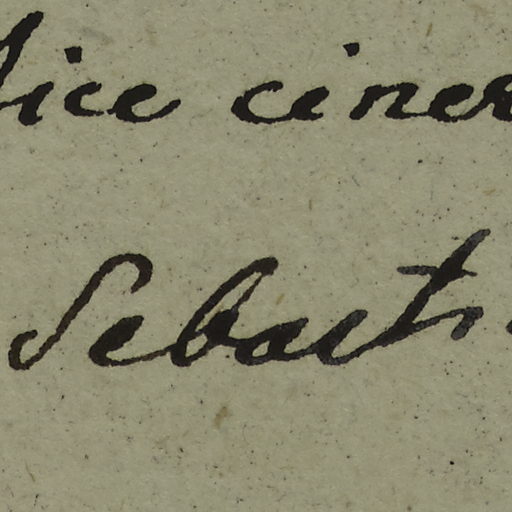 lice ciner
Sebasti